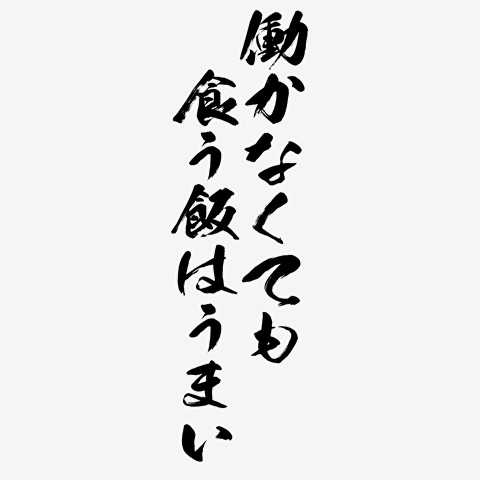 働かなくても
食う飯はうまい